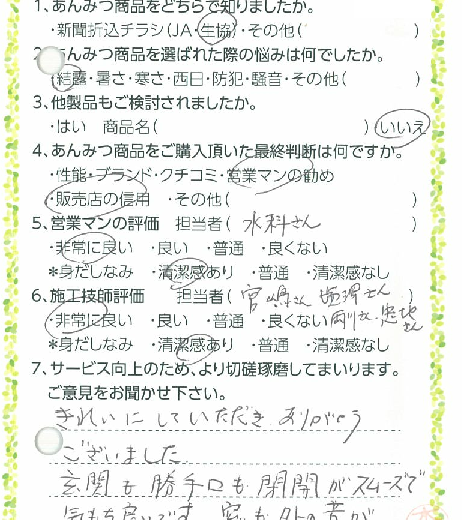 1、あんみつ商品をどちらで知りましたか。
・新聞折込チラシ(JA・生協)・その他( )
2、あんみつ商品を選ばれた際の悩みは何でしたか。
・結露・暑さ・寒さ・西日・防犯・騒音・その他( )
3、他製品もご検討されましたか。
・はい 商品名( )・いいえ
4、あんみつ商品をご購入頂いた最終判断は何ですか。
・性能・ブランド・クチコミ・営業マンの勧め
・販売店の信用 ・その他( )
5、営業マンの評価 担当者( 水科さん )
・非常に良い ・良い ・普通 ・良くない
*身だしなみ ・清潔感あり ・普通 ・清潔感なし
6、施工技師評価 担当者( 宮嶋さん さん )
・非常に良い ・良い ・普通 ・良くない さん
*身だしなみ ・清潔感あり ・普通 ・清潔感なし
7、サービス向上のため、より切磋琢磨してまいります。
ご意見をお聞かせ下さい。
きれいにしていただき ありがとう
ございました
玄関も勝手口も開閉がスムーズで
気もち良いです 窓も外の音が